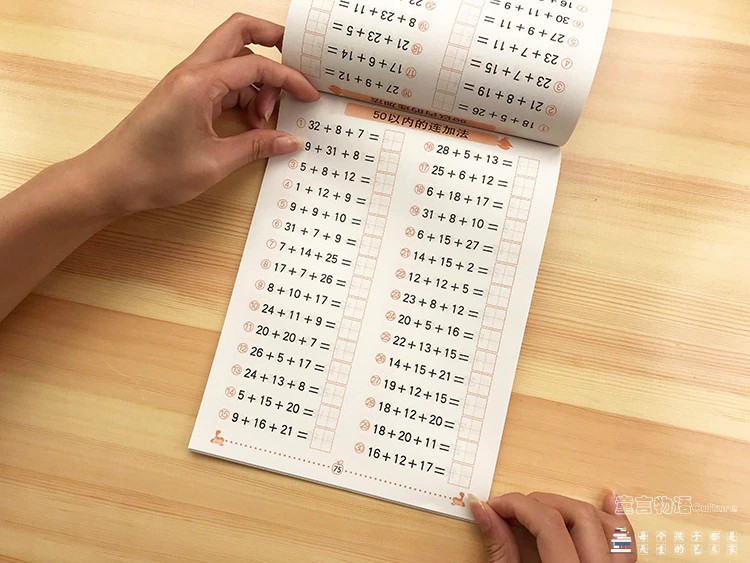 50以内的连加法
① 32+8+7=
9+31+8=
③ 5+8+12=
④ 1+12+9=
⑤ 9+9+10=
⑥ 31+7+9=
⑦ 7+14+25=
⑧ 17+7+26=
⑨ 8+10+17=
⑩ 24+11+9=
⑪ 20+20+7=
⑫ 26+5+17=
⑬ 24+13+8=
⑭ 5+15+20=
⑮ 9+16+21=
⑯ 28+5+13=
⑰ 25+6+12=
⑱ 6+18+17=
⑲ 31+8+10=
⑳ 6+15+27=
㉑ 14+15+2=
㉒ 12+12+5=
㉓ 23+8+12=
㉔ 20+5+16=
㉕ 22+13+15=
㉖ 14+15+21=
㉗ 19+12+15=
㉘ 18+12+20=
㉙ 18+20+11=
㉚ 16+12+17=
75
① 18+5+26=
② 21+8+19=
③ 23+7+15=
④ 23+7+11=
⑤ 27+9+11=
⑥ 30+11+9=
⑯ 27+9+12=
⑰ 17+6+14=
⑱ 21+23+5=
⑲ 8+23+11=
童言物语Culture
每个孩子都是
天生的艺术家